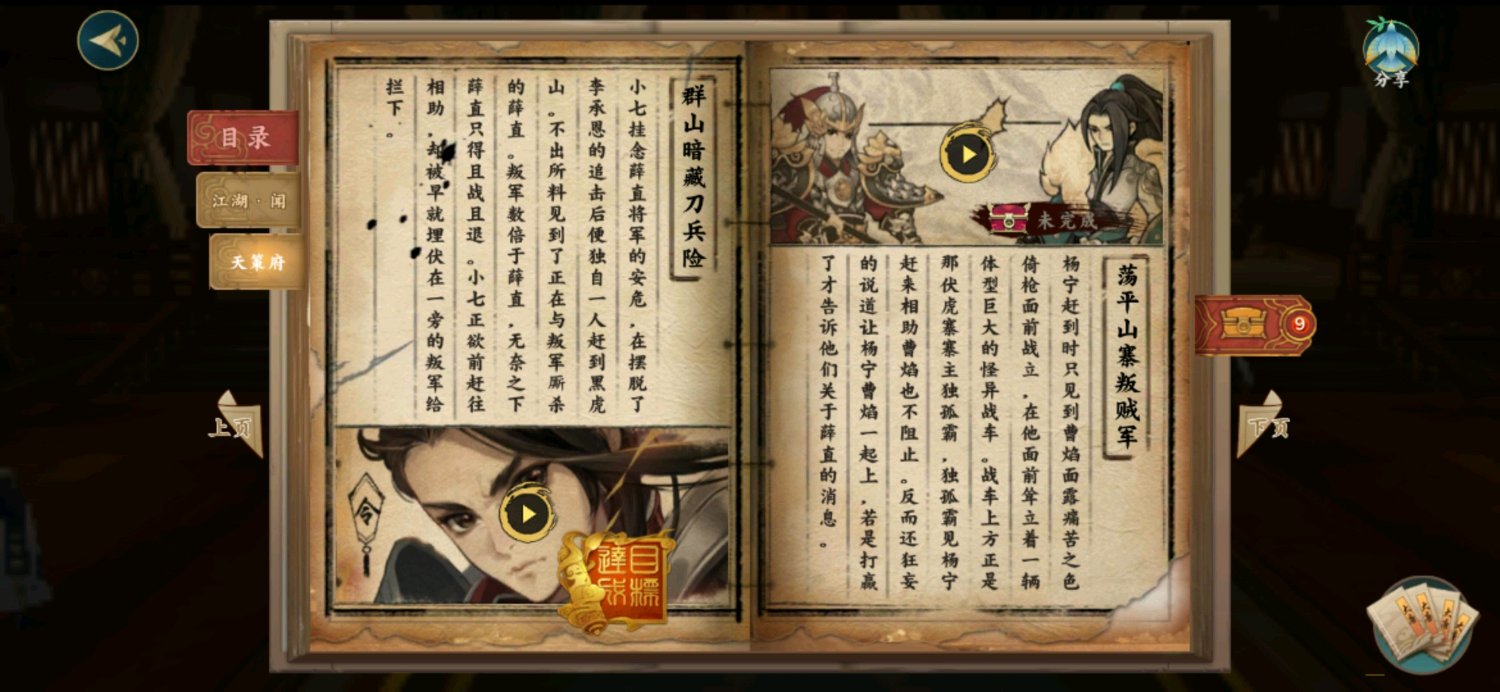 分享
目录
江湖·闻
天策府
上页
群山暗藏刀兵险
小七挂念薛直将军的安危,在摆脱了
李承恩的追击后便独自一人赶到黑虎
山。不出所料见到了正在与叛军厮杀
的薛直。叛军数倍于薛直,无奈之下
薛直只得且战且退。小七正欲前赶往
相助,却被早就埋伏在一旁的叛军给
拦下。
令
目标
達成
未完成
荡平山寨叛贼军
杨宁赶到时只见到曹焰面露痛苦之色
倚枪面前战立,在他面前耸立着一辆
体型巨大的怪异战车。战车上方正是
那伏虎寨寨主独孤霸,独孤霸见杨宁
赶来相助曹焰也不阻止。反而还狂妄
的说道让杨宁曹焰一起上,若是打赢
了才告诉他们关于薛直的消息。
9
下页